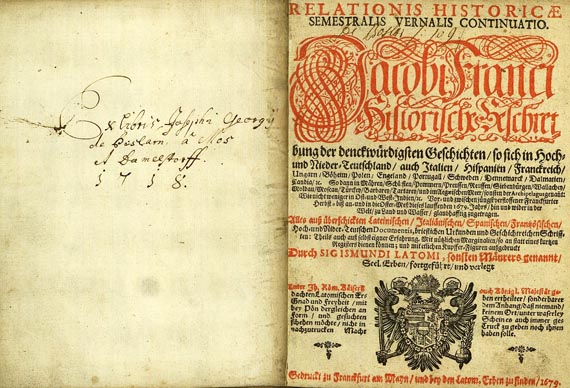 Ex libris Josephi Georgij
de
à
Damelstorff.
1718.
RELATIONIS HISTORICÆ
SEMESTRALIS VERNALIS CONTINUATIO.
Jacobi Franci
Historische Beschrei
bung der denckwürdigsten Geschichten / so sich in Hoch-
und Nieder-Teutschland / auch Italien / Hispanien / Franckreich /
Ungarn / Böheim / Polen / Engeland / Portugall / Schweden / Dennemarck / Dalmatien /
Candia / ꝛc. So dann in Mähren / Schlesien / Pommern / Preussen / Reussen / Siebenbürgen / Wallachey /
Moldau / Moscau / Türckey / Barbarey / Tartarey / und im Aegeischen Meer / sonsten der Archipelagus genañt /
Wie nicht weniger in Ost- und West-Indien / ꝛc. Vor- und zwischen jüngst verflossener Franckfurter
Herbst- biß an- und in die Oster-Meß dieses lauffenden 1679. Jahrs / hin und wider in der
Welt / zu Land und Wasser / glaubhafftig zugetragen.
Alles auß überschickten Lateinischen / Italiänischen / Spanischen / Frantzösischen /
Hoch- und Nider-Teutschen Documentis, brieflichen Urkunden und Geschichtreichen Schriff-
ten: Theils auch auß selbst eigner Erfahrung. Mit nützlichen Marginalien / so an statt eines kurtzen
Registers dienen können; und mit etlichen Kupffer-Figuren außgedruckt
Durch SIGISMUNDI LATOMI, sonsten Mäurers genannt /
Seel. Erben / fortgeführt / und verlegt
Unter Ih. Röm. Käiserl.
dachten Latomischen Er-
Gnad und Freyheit / mit
bey Pön dergleichen an
Form / und gesuchten
schehen möchte / nicht in
nachzutrucken Macht
auch Königl. Majestät ge-
ben ertheilter / sonderbarer
dem Anhang / daß niemand
keinem Ort / unter waserley
Schein es auch immer ge-
Truck zu geben noch ihnen
haben solle.
Gedruckt zu Franckfurt am Mayn / und bey den Latom. Erben zu finden / 1679.